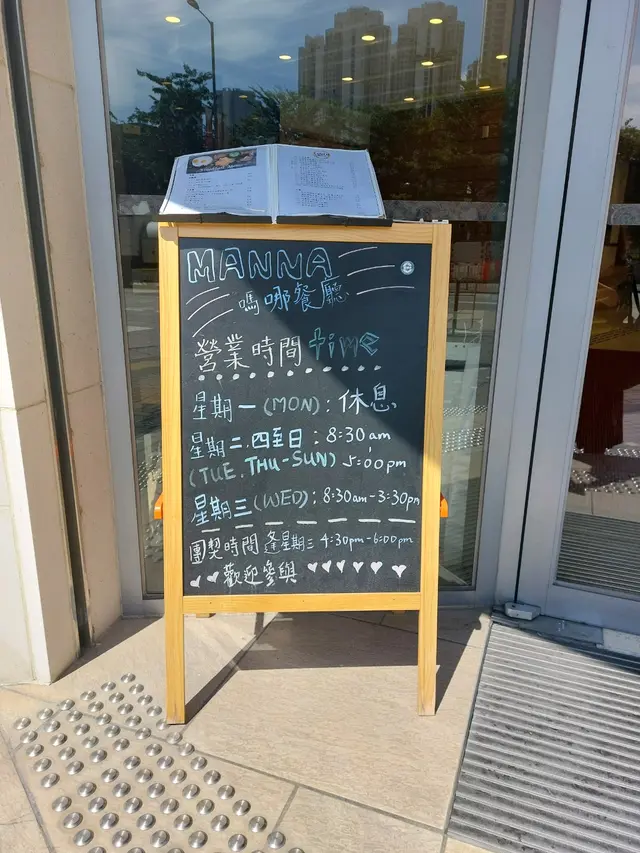 MANNA
嗎哪餐廳
營業時間 time
星期一(MON):休息
星期二.四至日:8:30am
(TUE. THU-SUN) 5:00pm
星期三(WED):8:30am-3:30pm
團契時間 逢星期三 4:30pm-6:00pm
歡迎參與